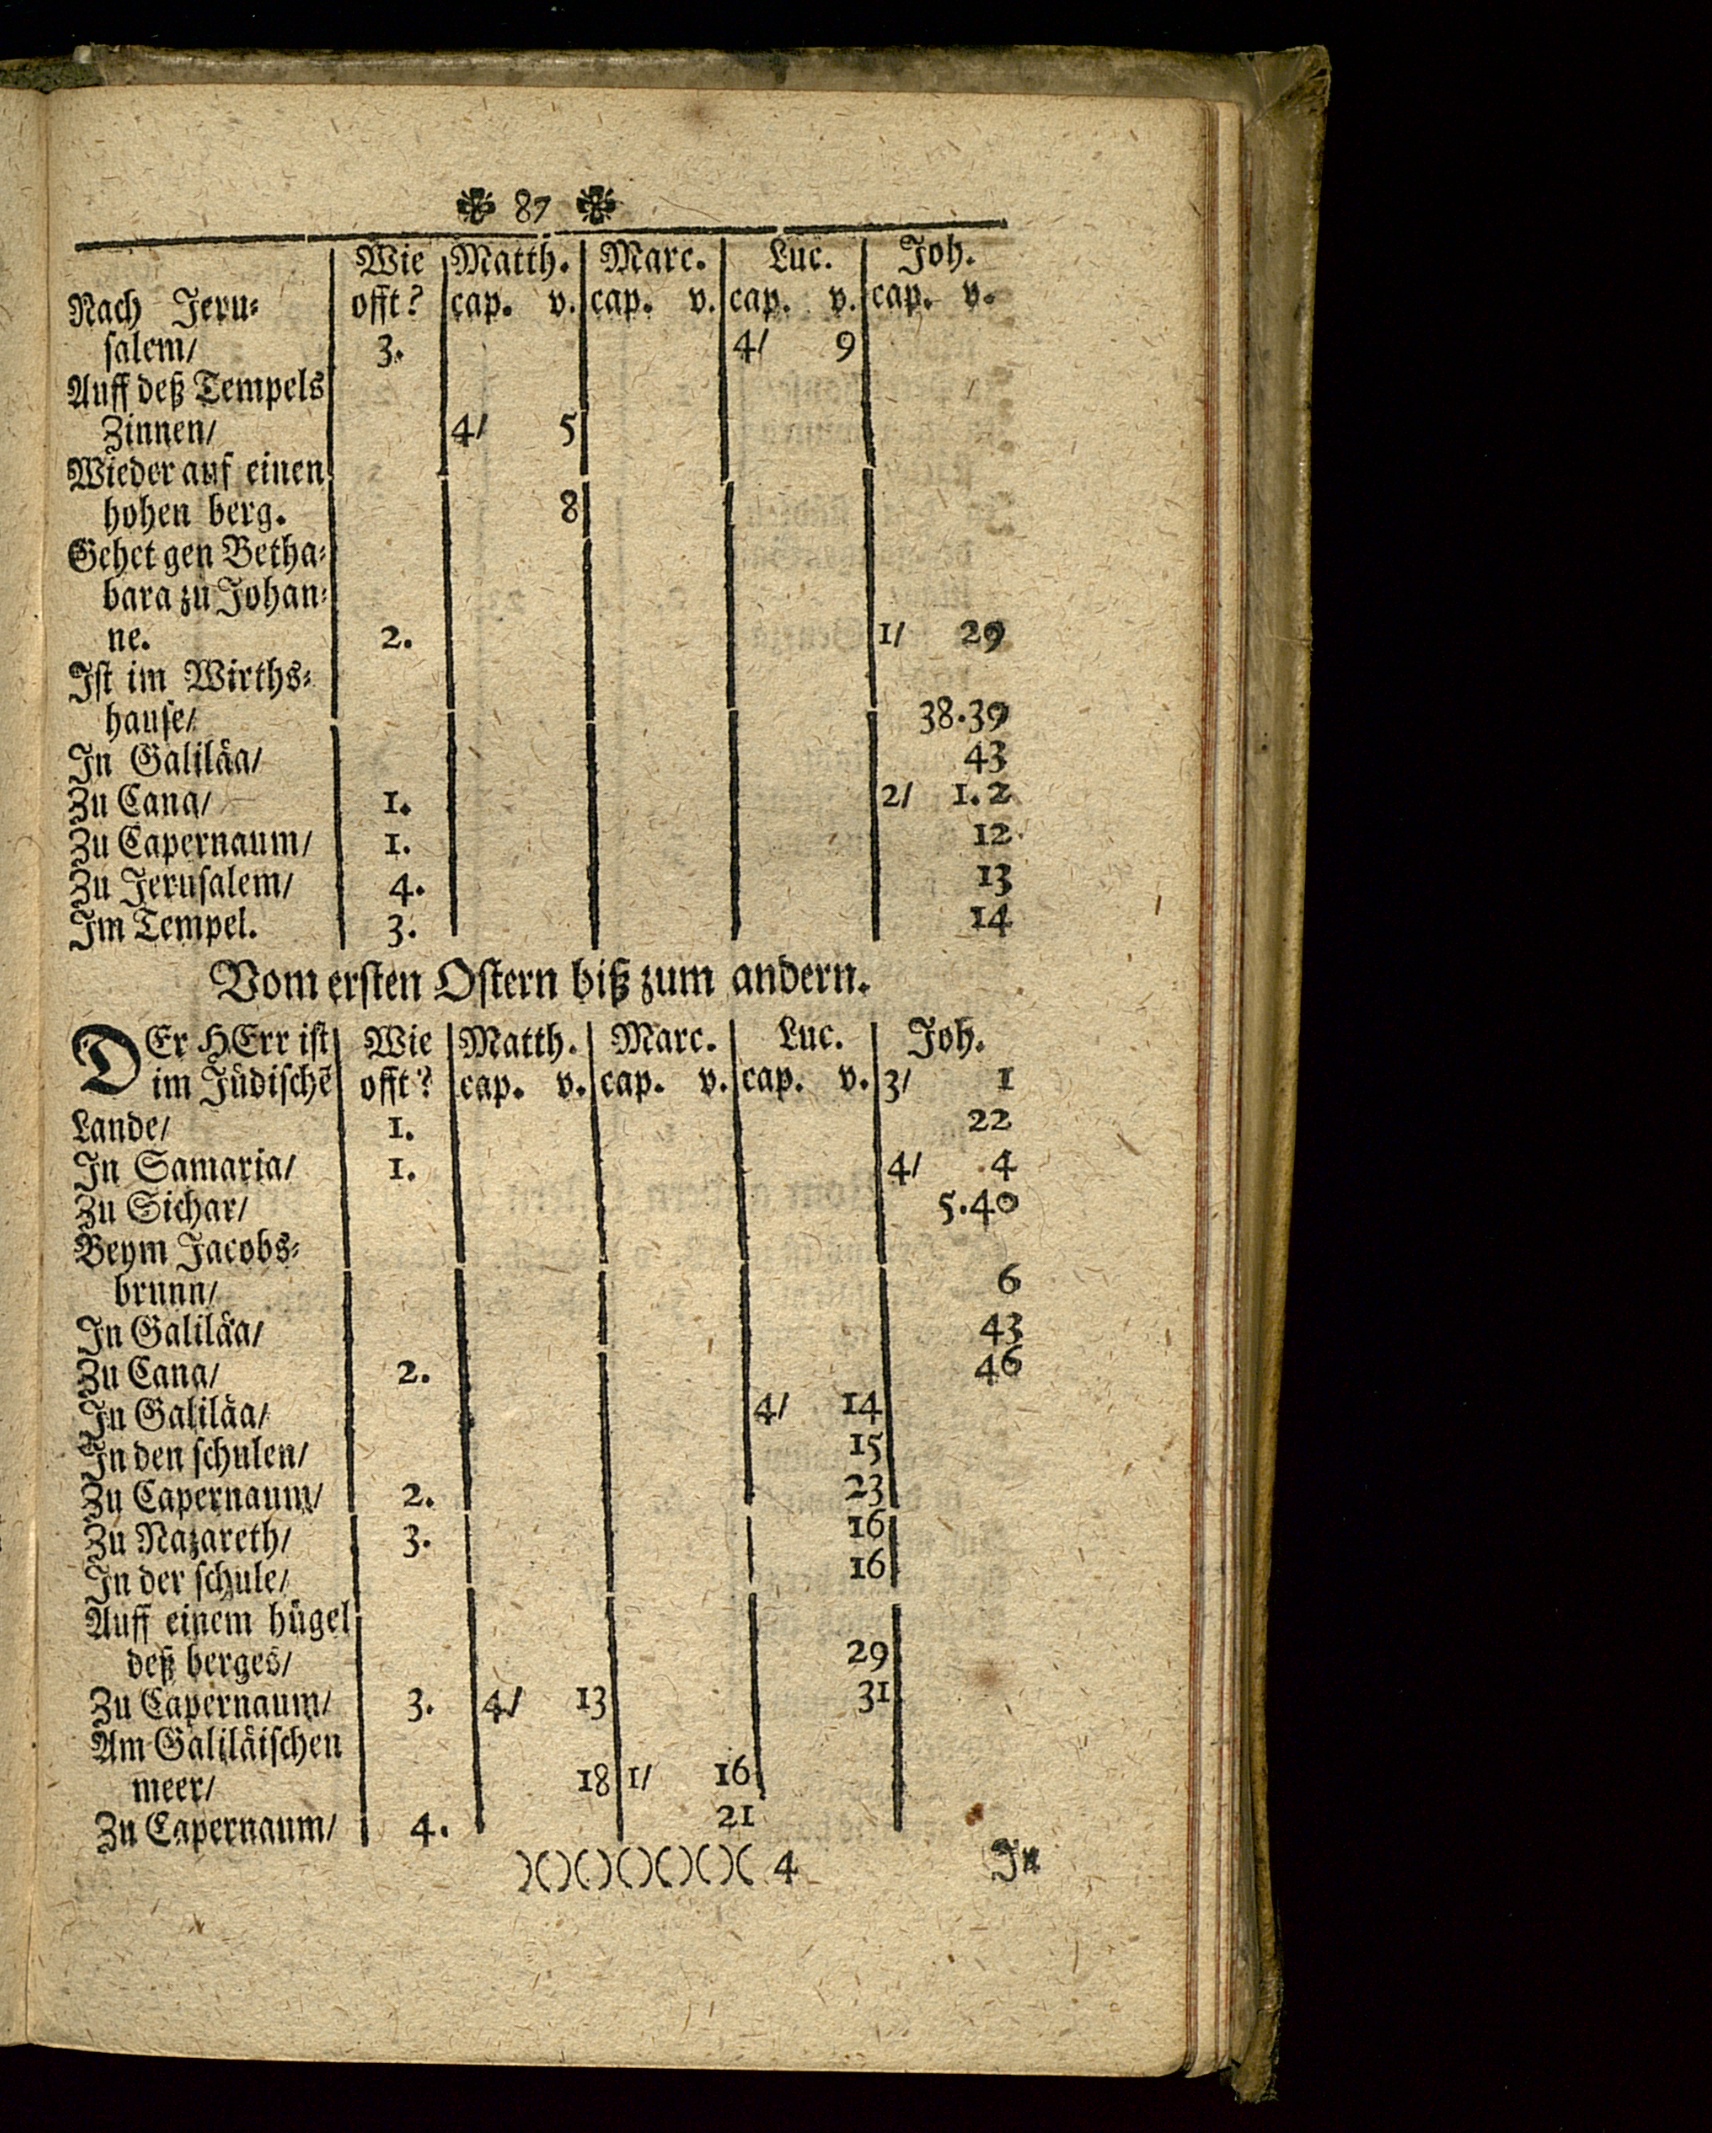 87
Wie Matth. Marc. Luc. Joh.
Nach Jeru- offt? cap. v. cap. v. cap. v. cap. v.
salem/ 3. 4/ 9
Auff deß Tempels
Zinnen/ 4/ 5
Wieder auf einen
hohen berg. 8
Gehet gen Betha-
bara zu Johan-
ne. 2. 1/ 29
Ist im Wirths-
hause/ 38.39
In Galiläa/ 43
Zu Cana/ 1. 2/ 1.2
Zu Capernaum/ 1. 12
Zu Jerusalem/ 4. 13
Im Tempel. 3. 14
Vom ersten Ostern biß zum andern.
DEr HErr ist Wie Matth. Marc. Luc. Joh.
im Jüdischē offt? cap. v. cap. v. cap. v. 3/ 1
Lande/ 1. 22
In Samaria/ 1. 4/ 4
Zu Sichar/ 5.40
Beym Jacobs-
brunn/ 6
In Galiläa/ 43
Zu Cana/ 2. 46
In Galiläa/ 4/ 14
In den schulen/ 15
Zu Capernaum/ 2. 23
Zu Nazareth/ 3. 16
In der schule/ 16
Auff einem hügel
deß berges/ 29
Zu Capernaum/ 3. 4/ 13 31
Am Galiläischen
meer/ 18 1/ 16
Zu Capernaum/ 4. 21
)()()()()()()( 4 In